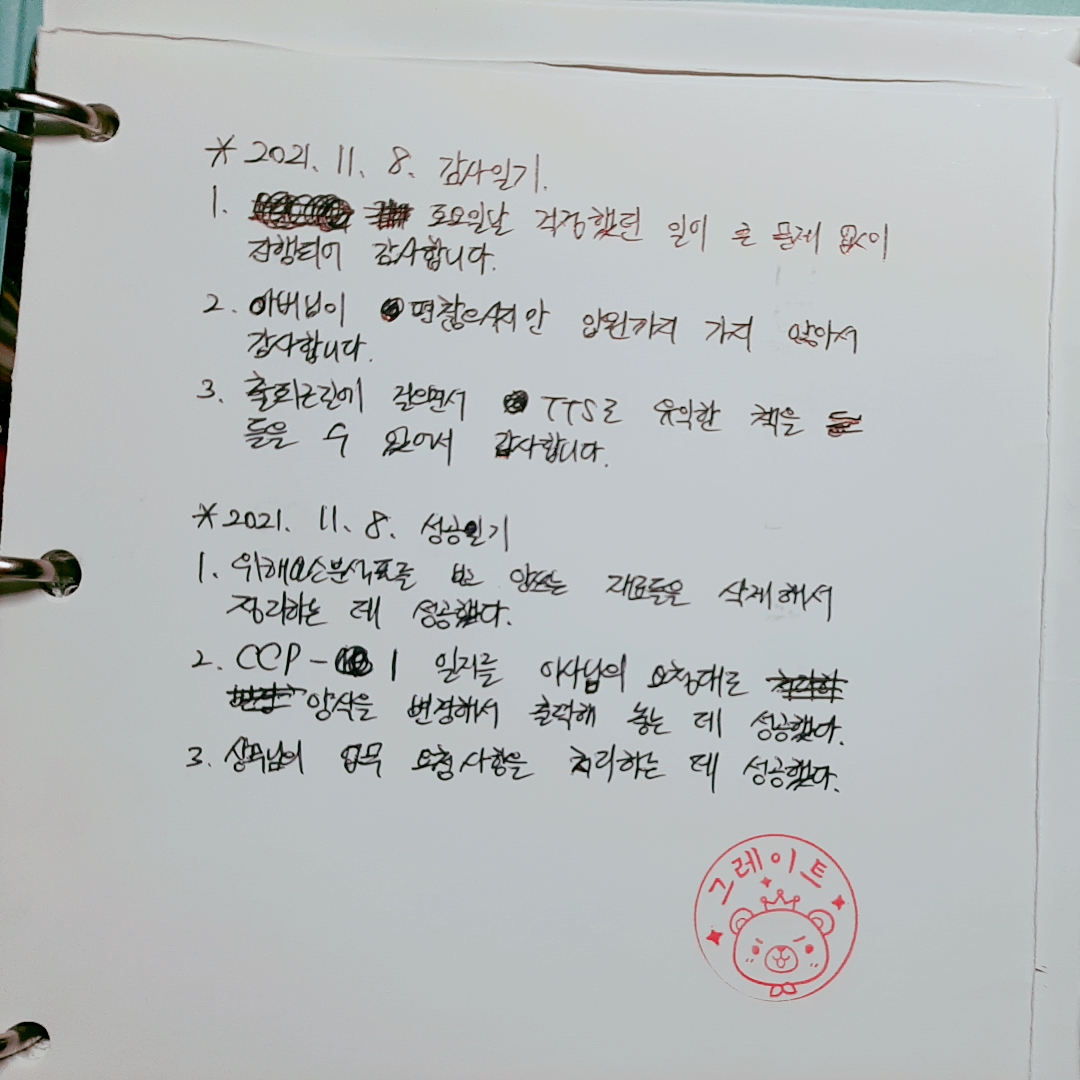 * 2021. 11. 8. 감사일기.
1. 토요일날 걱정했던 일이 큰 문제 없이
진행되어 감사합니다.
2. 아버님이 편찮으시지만 입원까지 가지 않아서
감사합니다.
3. 출퇴근길에 걸으면서 TTS로 유익한 책을
들을 수 있어서 감사합니다.
* 2021. 11. 8. 성공일기
1. 위해요소분석표를 보고 안쓰는 재료들을 삭제해서
정리하는 데 성공했다.
2. CCP - 1 일지를 이사님의 요청대로
양식을 변경해서 출력해 놓는 데 성공했다.
3. 상무님의 업무 요청사항을 처리하는 데 성공했다.
그레이트